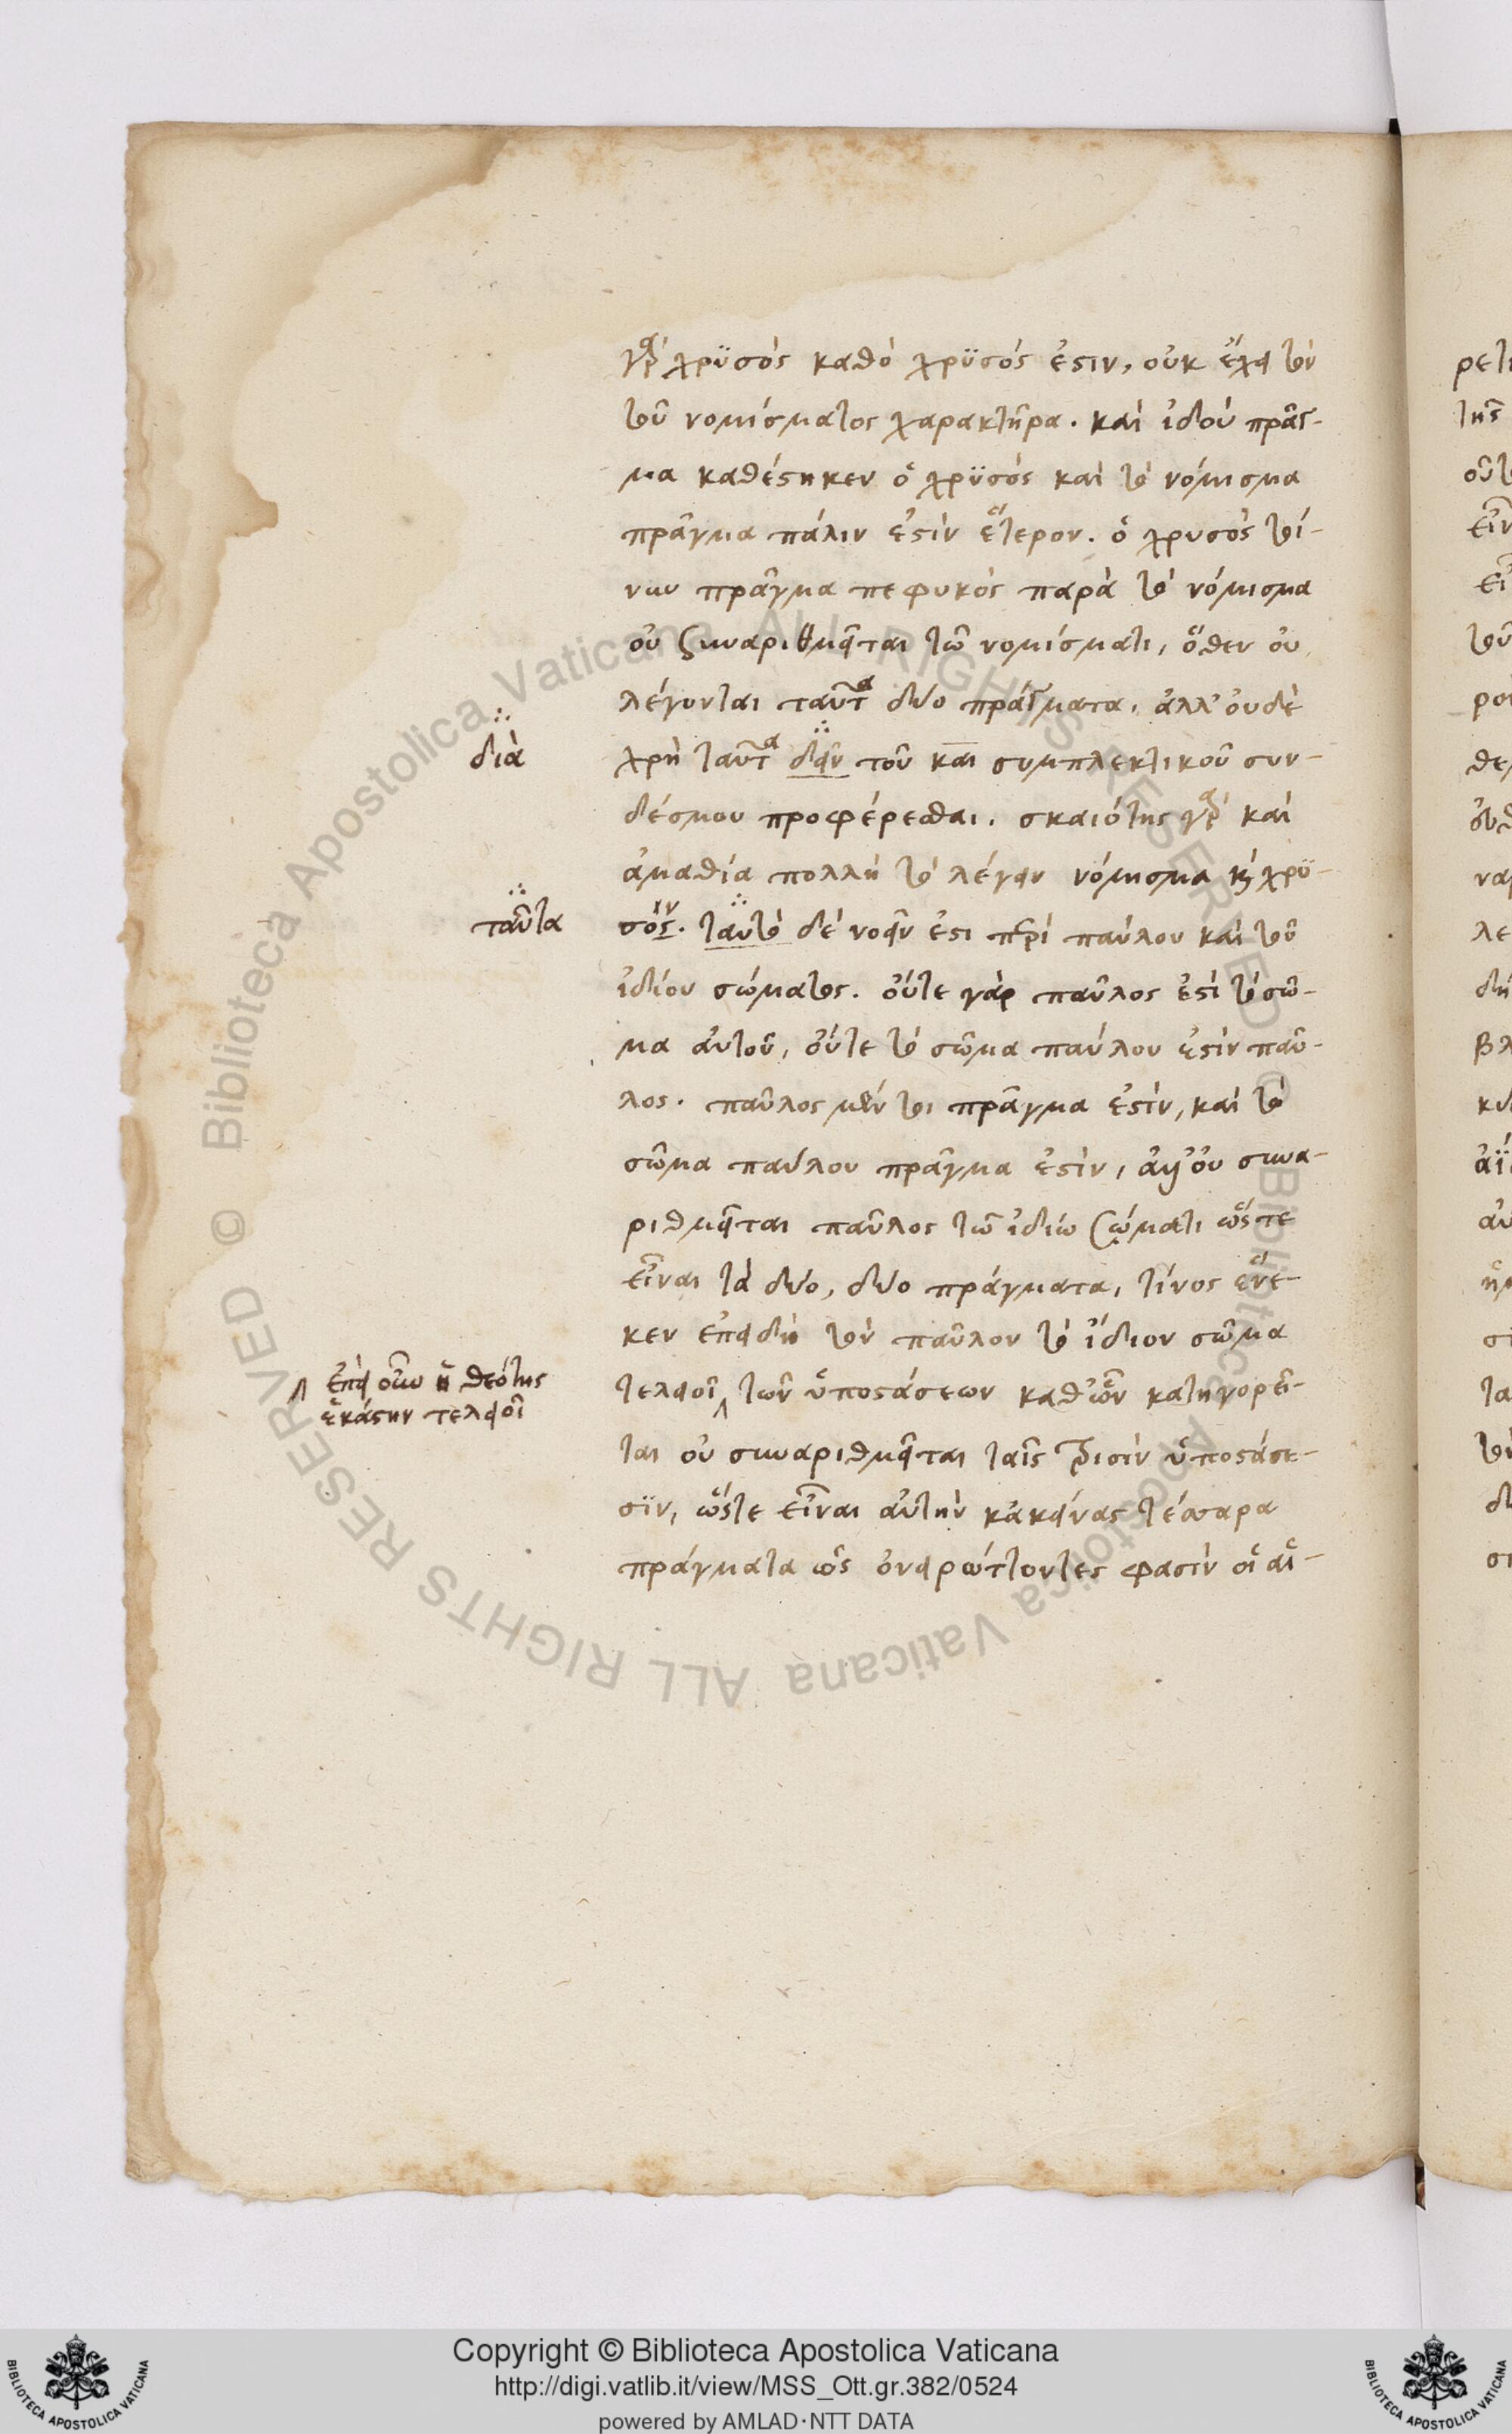 γὰρ χρϋσὸς καθὸ χρϋσός ἐστιν, οὐκ ἔχει τὸν
τοῦ νομίσματος χαρακτῆρα. καὶ ἰδοὺ πρᾶγ-
μα καθέστηκεν ὁ χρϋσὸς καὶ τὸ νόμισμα
πρᾶγμα πάλιν ἐστὶν ἕτερον. ὁ χρυσὸς τοί-
νυν πρᾶγμα πεφυκὸς παρὰ τὸ νόμισμα
οὐ συναριθμεῖται τῶ νομίσματι, ὅθεν οὐ
λέγονται ταῦτα δύο πράγματα, ἀλλ' οὐδὲ
διὰ
χρὴ ταῦτα δεῖν τοῦ και συμπλεκτικοῦ συν-
δέσμου προσφέρεσθαι. σκαιότης γὰρ καὶ
ἀμαθία πολλὴ τὸ λέγειν νόμησμα καὶ χρϋ-
ταῦτα
σός. ταυτὸ δὲ νοεῖν ἐστι περὶ παύλου καὶ τοῦ
ἰδίου σώματος. οὔτε γὰρ παῦλος ἐστὶ τὸ σῶ-
μα αὐτοῦ, οὔτε τὸ σῶμα παύλου ἐστὶν παῦ-
λος. παῦλος μέν τοι πρᾶγμα ἐστὶν, καὶ τὸ
σῶμα παύλου πρᾶγμα ἐστὶν, ἀλλ' οὐ συνα-
ριθμεῖται παῦλος τῶ ἰδίω σώματι ὥστε
εἶναι τὰ δύο, δύο πράγματα, τίνος ἕνε-
κεν ἐπειδὴ τὸν παῦλον τὸ ἴδιον σῶμα
ἐπεὶ οὖν ἡ θεότης
ἑκάστην τελειοῖ
τελειοῖ τῶν ὑποστάσεων καθ' ὧν κατηγορεῖ-
ται οὐ συναριθμεῖται ταῖς τρισὶν ὑποστάσε-
σϊν, ὥστε εἶναι αὐτὴν κἀκείνας τέσσαρα
πράγματα ὡς ὀνειρώττοντες φασὶν οἱ αἱ-
Copyright © Biblioteca Apostolica Vaticana
http://digi.vatlib.it/view/MSS_Ott.gr.382/0524
powered by AMLAD·NTT DATA